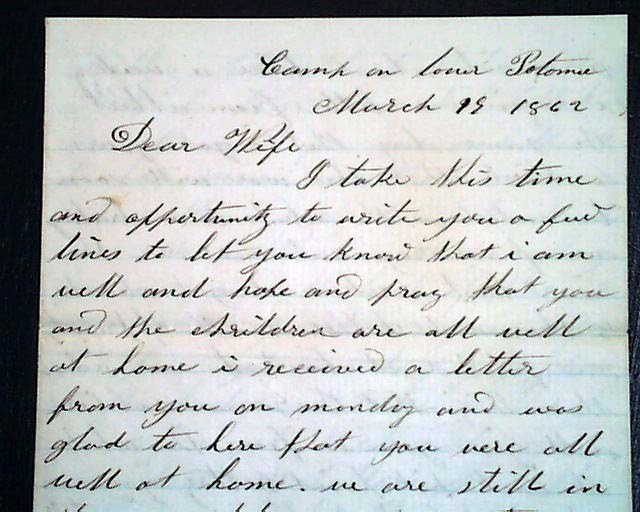 Camp on lower Potomac
March 19 1862
Dear Wife
I take this time
and opportunity to write you a few
lines to let you know that i am
well and hope and pray that you
and the chrildren are all well
at home i received a letter
from you on monday and was
glad to here that you were all
well at home. we are still in